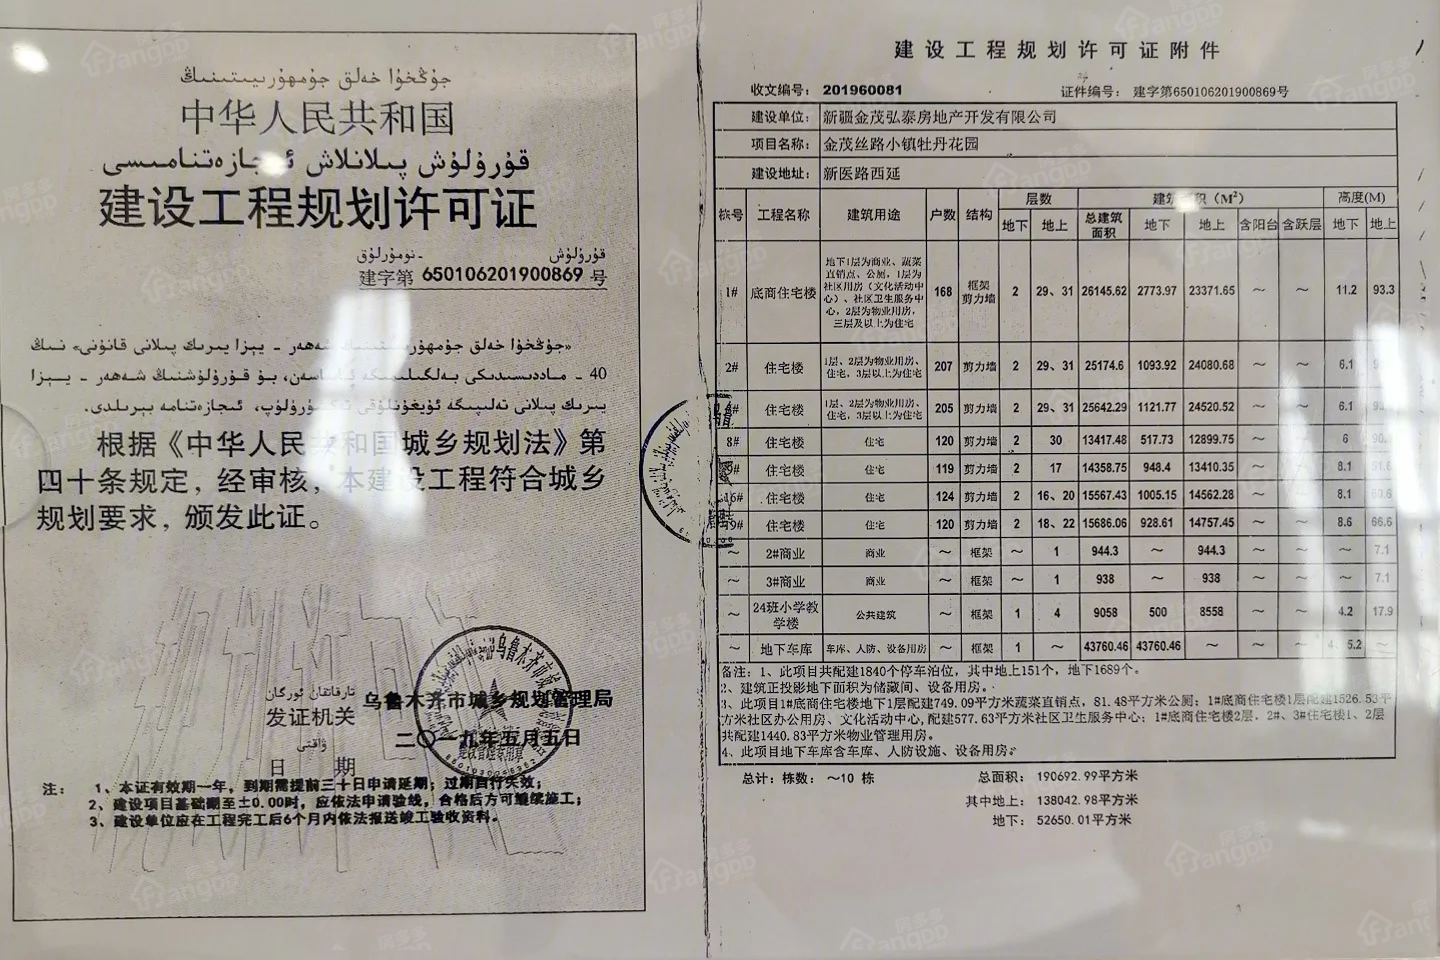 جۇڭخۇا خەلق جۇمھۇرىيىتىنىڭ
中华人民共和国
قۇرۇلۇش پىلانلاش ئىجازەتنامىسى
建设工程规划许可证
قۇرۇلۇش - نومۇرلۇق
建字第 650106201900869 号
«جۇڭخۇا خەلق جۇمھۇرىيىتىنىڭ شەھەر - يېزا يىرىك پىلانى قانۇنى» نىڭ
40 - ماددىسىدىكى بەلگىلىمىگە ئاساسەن، بۇ قۇرۇلۇشنىڭ شەھەر - يېزا
يىرىك پىلانى تەلىپىگە ئۇيغۇنلۇقى بېرىلدى.
根据《中华人民共和国城乡规划法》第
四十条规定，经审核，本建设工程符合城乡
规划要求，颁发此证。
تارقاتقان ئورگان
发证机关 乌鲁木齐市城乡规划管理局
ۋاقتى
二〇一九年五月五日
日 期
注： 1、本证有效期一年，到期需提前三十日申请延期；过期自行失效；
2、建设项目基础砌至±0.00时，应依法申请验线，合格后方可继续施工；
3、建设单位应在工程完工后6个月内依法报送竣工验收资料。
建设工程规划许可证附件
收文编号： 201960081 证件编号： 建字第650106201900869号
建设单位： 新疆金茂弘泰房地产开发有限公司
项目名称： 金茂丝路小镇牡丹花园
建设地址： 新医路西延
栋号 工程名称 建筑用途 户数 结构 层数 建筑 积（M²） 高度(M)
地下 地上 总建筑面积 地下 地上 含阳台 含跃层 地下 地上
1# 底商住宅楼 地下1层为商业、蔬菜直销点、公厕，1层为社区用房（文化活动中心）、社区卫生服务中心，2层为物业用房，三层及以上为住宅 168 框架剪力墙 2 29、31 26145.62 2773.97 23371.65 ～ ～ 11.2 93.3
2# 住宅楼 1层、2层为物业用房、住宅，3层以上为住宅 207 剪力墙 2 29、31 25174.6 1093.92 24080.68 ～ ～ 6.1
# 住宅楼 1层、2层为物业用房、住宅，3层以上为住宅 205 剪力墙 2 29、31 25642.29 1121.77 24520.52 ～ ～ 6.1
8# 住宅楼 住宅 120 剪力墙 2 30 13417.48 517.73 12899.75 ～ ～ 6
9# 住宅楼 住宅 119 剪力墙 2 17 14358.75 948.4 13410.35 ～ ～ 8.1
16# 住宅楼 住宅 124 剪力墙 2 16、20 15567.43 1005.15 14562.28 ～ ～ 8.1
9# 住宅楼 住宅 120 剪力墙 2 18、22 15686.06 928.61 14757.45 ～ ～ 8.6 66.6
～ 2#商业 商业 ～ 框架 ～ 1 944.3 ～ 944.3 ～ ～ ～ 7.1
～ 3#商业 商业 ～ 框架 ～ 1 938 ～ 938 ～ ～ ～ 7.1
～ 24班小学教学楼 公共建筑 ～ 框架 1 4 9058 500 8558 ～ ～ 4.2 17.9
～ 地下车库 车库、人防、设备用房 ～ 框架 1 ～ 43760.46 43760.46 ～ ～ ～ 5.2 ～
备注：1、此项目共配建1840个停车泊位，其中地上151个，地下1689个。
2、建筑正投影地下面积为储藏间、设备用房。
3、此项目1#底商住宅楼地下1层配建749.09平方米蔬菜直销点，81.48平方米公厕；1#底商住宅楼1层配建1526.53平
方米社区办公用房、文化活动中心，配建577.63平方米社区卫生服务中心；1#底商住宅楼2层，2#、3#住宅楼1、2层
共配建1440.83平方米物业管理用房。
4、此项目地下车库含车库、人防设施、设备用房。
总计：栋数： ～10 栋 总面积： 190692.99平方米
其中地上： 138042.98平方米
地下： 52650.01平方米